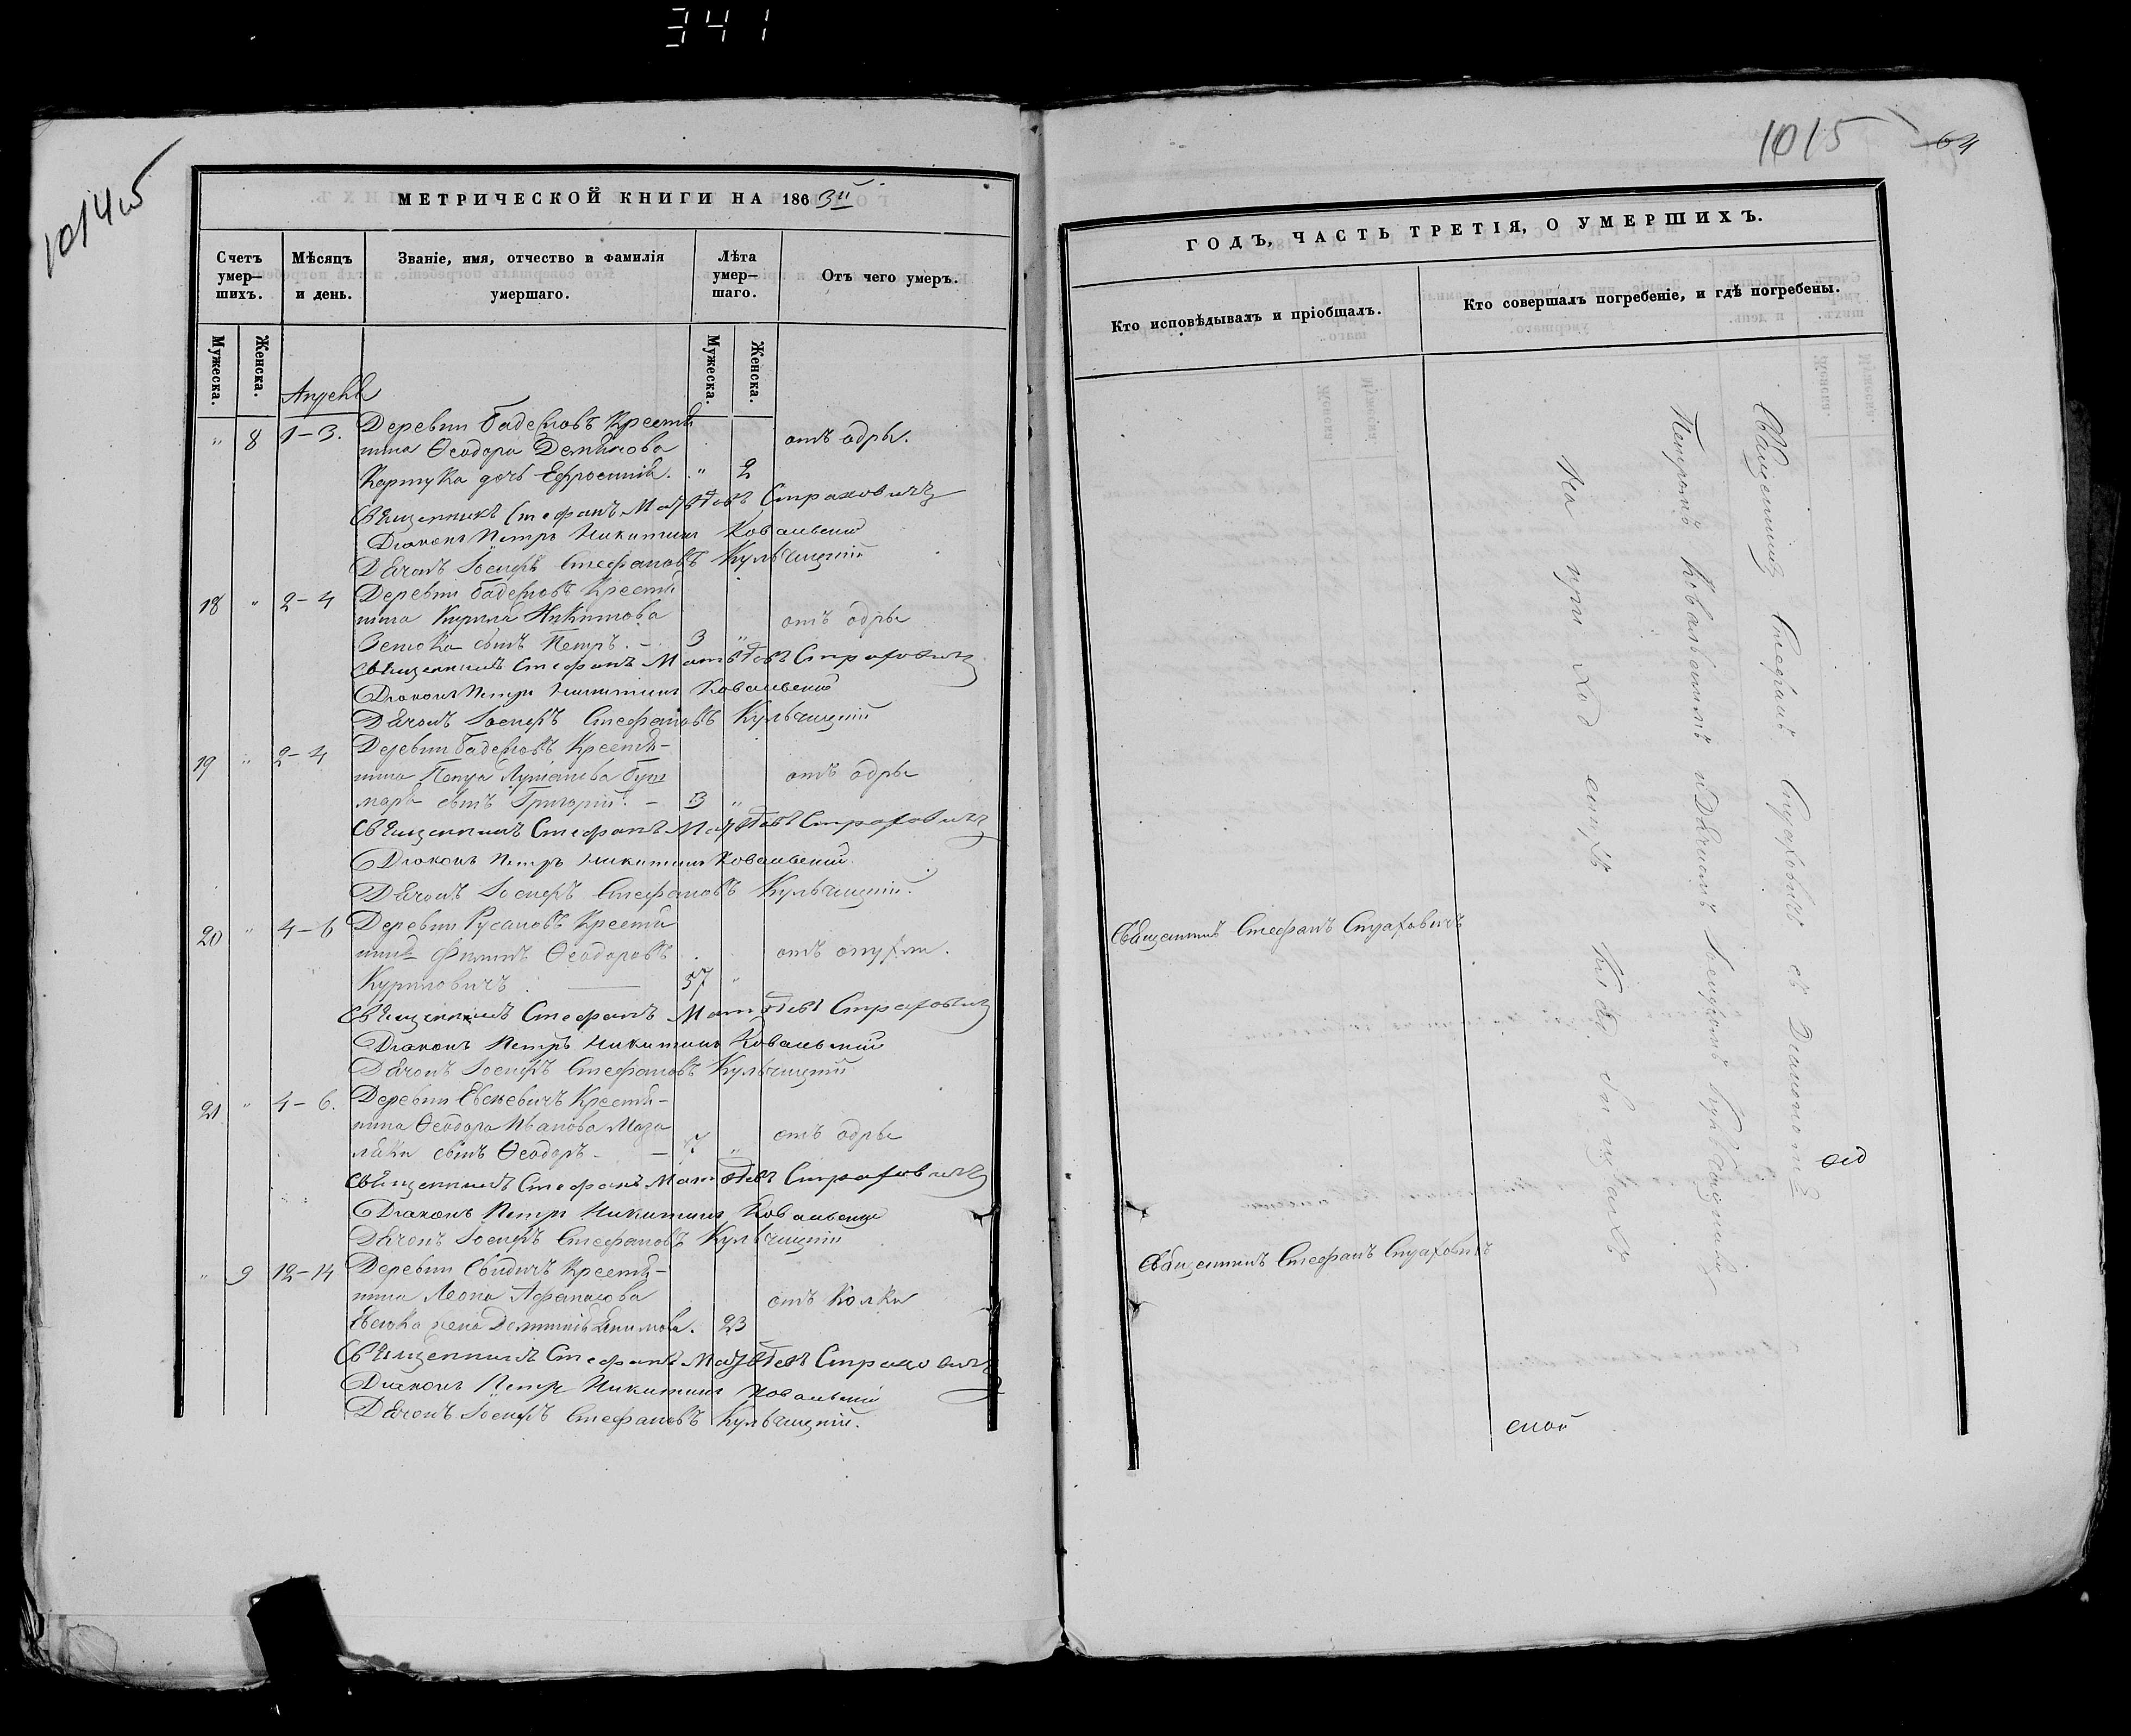 341
1014об
МЕТРИЧЕСКОЙ КНИГИ НА 1863й
Счетъ умер–шихъ.
Мѣсяцъ и день.
Званіе, имя, отчество и фамилія умершаго.
Лѣта умер–шаго.
Отъ чего умеръ.
Мужеска.
Женска.
Мужеска.
Женска.
Апрель
" 8 1–3. Деревни Бадежовъ Крестя
нина Ѳеодора
дочь Ефросинія. " 2 отъ одры.
Священникъ Стефанъ Матвѣевъ Страховичъ
Діаконъ Петръ Никитинъ Ковальскій
Дьячокъ Іосифъ Стефановъ Кульчицкій
18 " 2–4 Деревни Бадежовъ Крестя
нина Кирила Никитова
сынъ Петръ. – 3 " отъ одры
Священникъ Стефанъ Матвѣевъ Страховичъ
Діаконъ Петръ Никитинъ Ковальскій
Дьячокъ Іосифъ Стефановъ Кульчицкій
19 " 2–4 Деревни Бадежовъ Крестя–
нина
сынъ Григорій. – 3 " отъ одры
Священникъ Стефанъ Матвѣевъ Страховичъ
Діаконъ Петръ Никитинъ Ковальскій
Дьячокъ Іосифъ Стефановъ Кульчицкій.
20 " 4–6 Деревни Русановъ Крестя
нинъ Филипъ Ѳеодоровъ
Куриловичъ. 57 " отъ опухли.
Священникъ Стефанъ Матвѣевъ Страховичъ
Діаконъ Петръ Никитинъ Ковальскій
Дьячокъ Іосифъ Стефановъ Кульчицкій
21 " 4–6. Деревни Евсевичъ Крестя–
нина Ѳеодора Иванова
сынъ Ѳеодоръ – – 7 " отъ одры
Священникъ Стефанъ Матвѣевъ Страховичъ
Діаконъ Петръ Никитинъ Ковальскій
Дьячокъ Іосифъ Стефановъ Кульчицкій
" 9 12–14 Деревни Свидичъ Крестя–
нина Леона Афанасова
жена 23 отъ Колки
Священникъ Стефанъ Матвѣевъ Страховичъ
Діаконъ Петръ Никитинъ Ковальскій
Дьячокъ Іосифъ Стефановъ Кульчицкій.
1015
64
ГОДЪ, ЧАСТЬ ТРЕТІЯ, О УМЕРШИХЪ.
Кто исповѣдывалъ и пріобщалъ.
Кто совершалъ погребеніе, и гдѣ погребены.
Священникъ Стефанъ Страховичъ
Священникъ Стефанъ Страховичъ
Священникъ Стефанъ Страховичъ съ Діакономъ
Петромъ Ковальскимъ и Дьячкомъ Іосифомъ Кульчицкимъ
На приходскихъ кладбищахъ